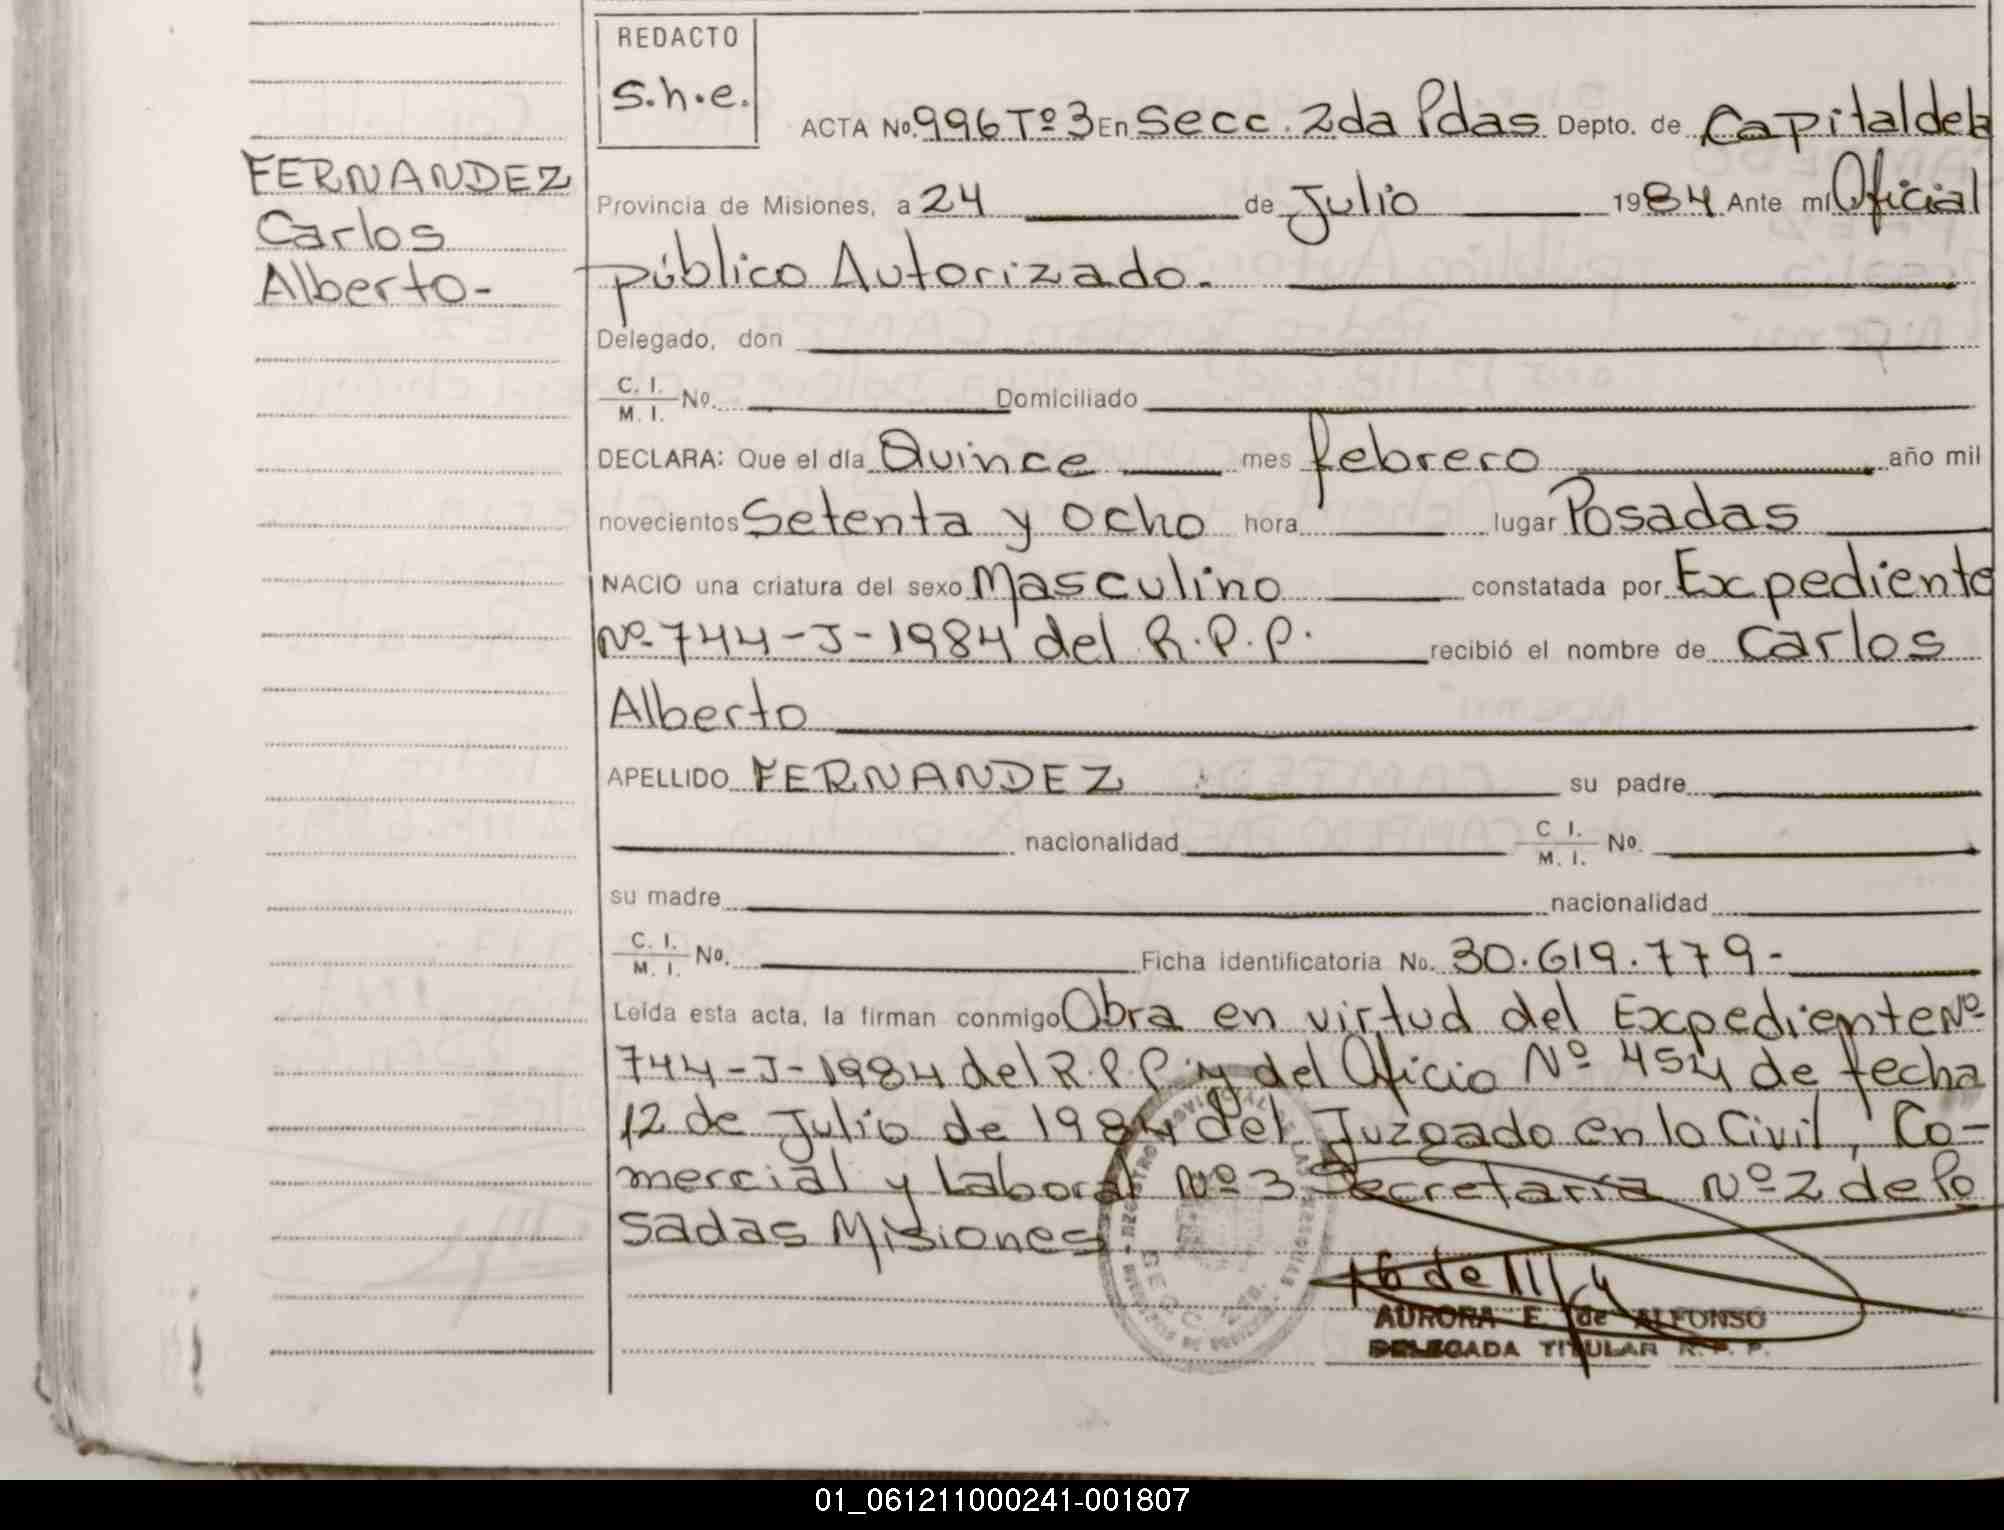 REDACTO
S.h.e.
ACTA No. 996 Tº 3 En Secc. 2da Pdas Depto. de Capital de la
FERNANDEZ
Carlos
Alberto-
Provincia de Misiones, a 24 de Julio 1984 Ante mí Oficial
público Autorizado.
Delegado, don
C. I.
M. I. No. Domiciliado
DECLARA: Que el día Quince mes febrero año mil
novecientos Setenta y ocho hora lugar Posadas
NACIO una criatura del sexo Masculino constatada por Expediente
Nº 744-J-1984 del R.P.P. recibió el nombre de Carlos
Alberto
APELLIDO FERNANDEZ su padre
nacionalidad C I. M. I. No.
su madre nacionalidad
C. I.
M. I. No. Ficha identificatoria No. 30.619.779-
Leída esta acta, la firman conmigo Obra en virtud del Expediente Nº
744-J-1984 del R.P.P. y del Oficio Nº 454 de fecha
12 de Julio de 1984 del Juzgado en lo Civil, Co-
mercial y Laboral Nº 3 Secretaría Nº 2 de Po
sadas Misiones
AURORA E. de ALFONSO
DELEGADA TITULAR R. P. P.
01_061211000241-001807